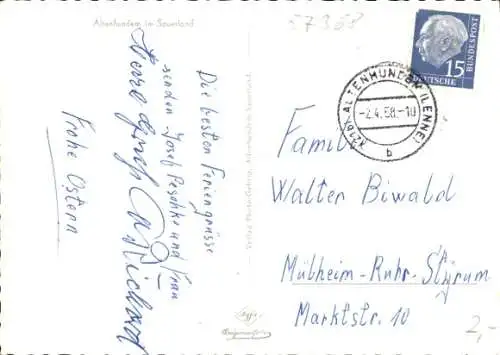 Altenhundem im Sauerland
57368
Die besten Feriengrüsse
senden Josef Peschke und Frau
Frohe Ostern
Richard
Verlag Photo-Gehrig, Altenhundem im Sauerland
Agfa
15
DEUTSCHE BUNDESPOST
(21b) ALTENHUNDEM (LENNE)
-2.4.58.-10
b
Familie
Walter Biwald
Mülheim-Ruhr-Styrum
Marktstr. 10
2,-